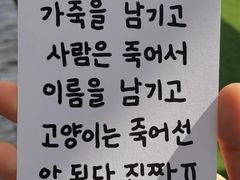 가죽을 남기고
사람은 죽어서
이름을 남기고
고양이는 죽어선
안 된다 진짜 ㅠ